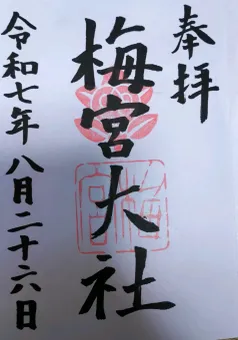 奉拝
梅宮大社
令和七年八月二十六日
梅宮